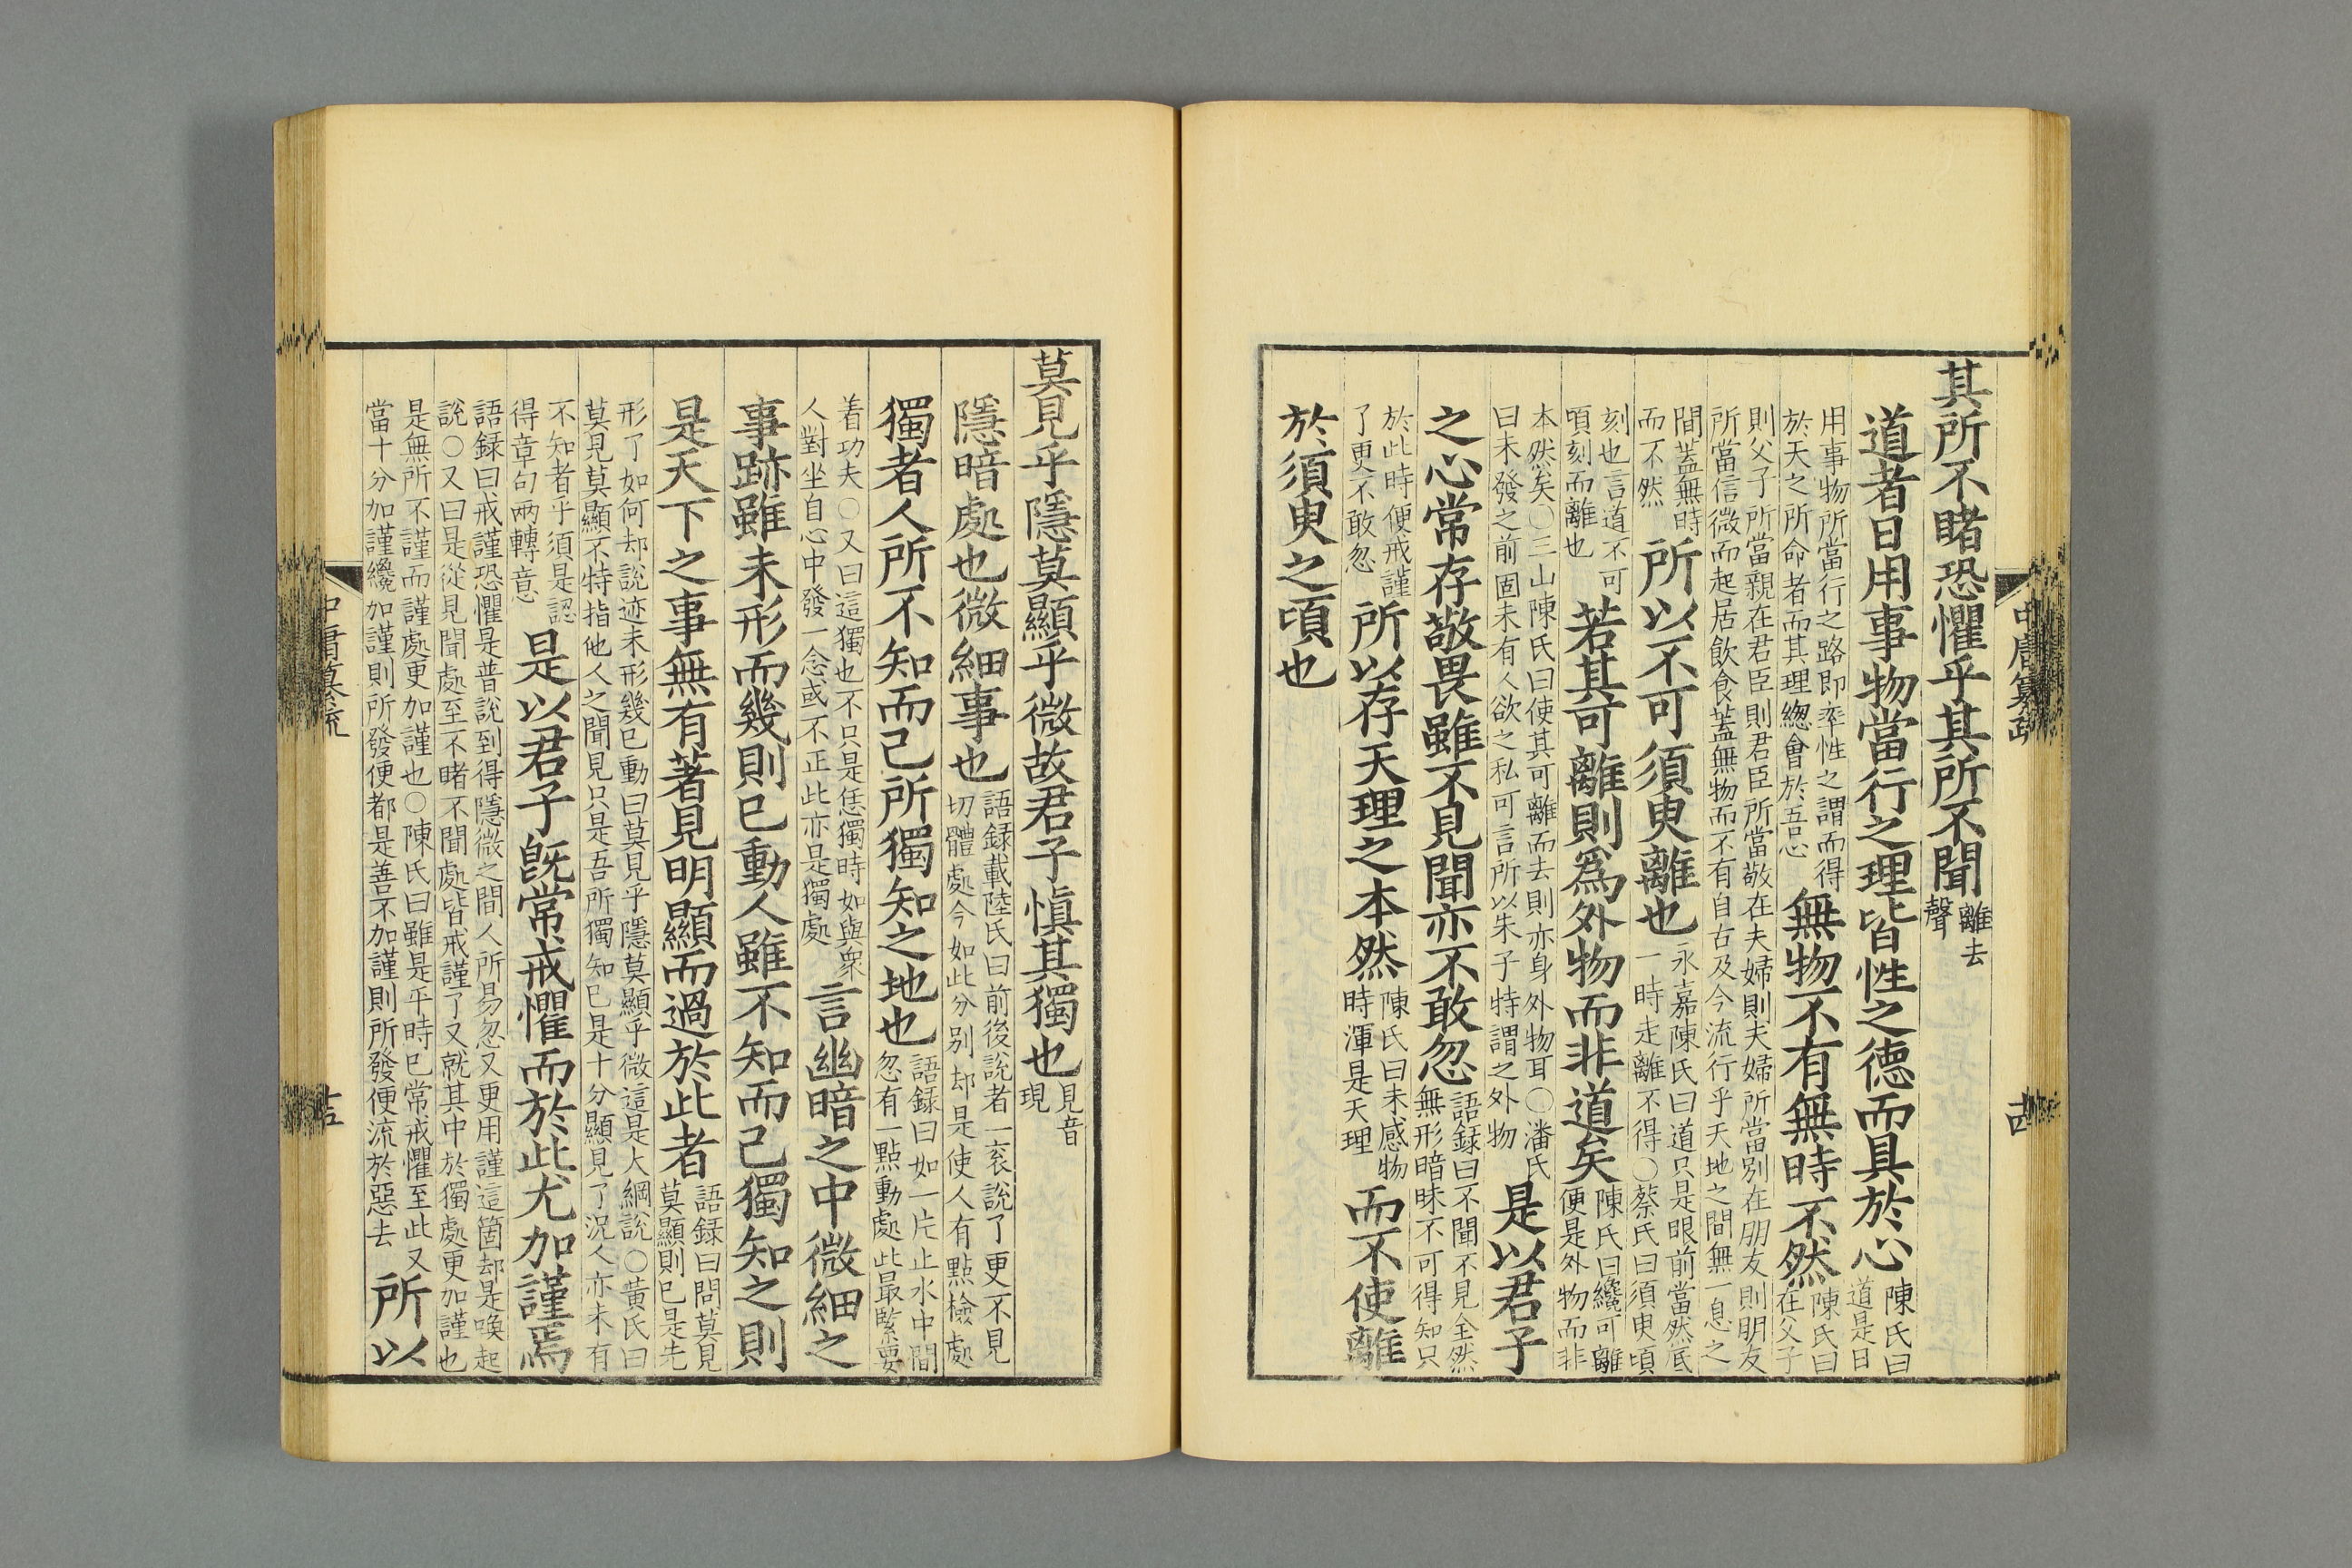 其所不睹恐懼乎其所不聞離去聲
道者日用事物當行之理皆性之德而具於心陳氏曰道是日
用事物所當行之路即率性之謂而得於天之所命者而其理總會於吾心無物不有無時不然陳氏曰在父子
則父子所當親在君臣則君臣所當敬在夫婦則夫婦所當別在朋友則朋友所當信微而起居飲食蓋無物而不有自古及今流行乎天地之間無一息之
間蓋無時而不然所以不可須臾離也永嘉陳氏曰道只是眼前當然底一時走離不得○蔡氏曰須臾頃
刻也言道不可頃刻而離也若其可離則為外物而非道矣陳氏曰纔可離便是外物而非
本然矣○三山陳氏曰使其可離而去則亦身外物耳○潘氏曰未發之前固未有人欲之私可言所以朱子特謂之外物是以君子
之心常存敬畏雖不見聞亦不敢忽語録曰不聞不見全然無形暗昧不可得知只
於此時便戒謹了更不敢忽所以存天理之本然陳氏曰未感物時渾是天理而不使離
於須臾之頃也
中庸纂疏
十四
莫見乎隱莫顯乎微故君子慎其獨也見音現
隱暗處也微細事也語録載陸氏曰前後說者一衮說了更不見切體處今如此分别却是使人有點檢處
獨者人所不知而己所獨知之地也語録曰如一片止水中間忽有一點動處此最緊要
着功夫○又曰這獨也不只是恁獨時如與衆人對坐自心中發一念或不正此亦是獨處言幽暗之中微細之
事跡雖未形而幾則已動人雖不知而己獨知之則
是天下之事無有著見明顯而過於此者語録曰問莫見莫顯則已是先
形了如何却說迹未形幾已動曰莫見乎隱莫顯乎微這是大綱說○黄氏曰莫見莫顯不特指他人之聞見只是吾所獨知已是十分顯見了況人亦未有
不知者乎須是認得章句两轉意是以君子既常戒懼而於此尤加謹焉
語録曰戒謹恐懼是普說到得隱微之間人所易忽又更用謹這箇却是喚起說○又曰是從見聞處至不睹不聞處皆戒謹了又就其中於獨處更加謹也
是無所不謹而謹處更加謹也○陳氏曰雖是平時已常戒懼至此又當十分加謹纔加謹則所發便都是善不加謹則所發便流於惡去所以
中庸纂疏
十五